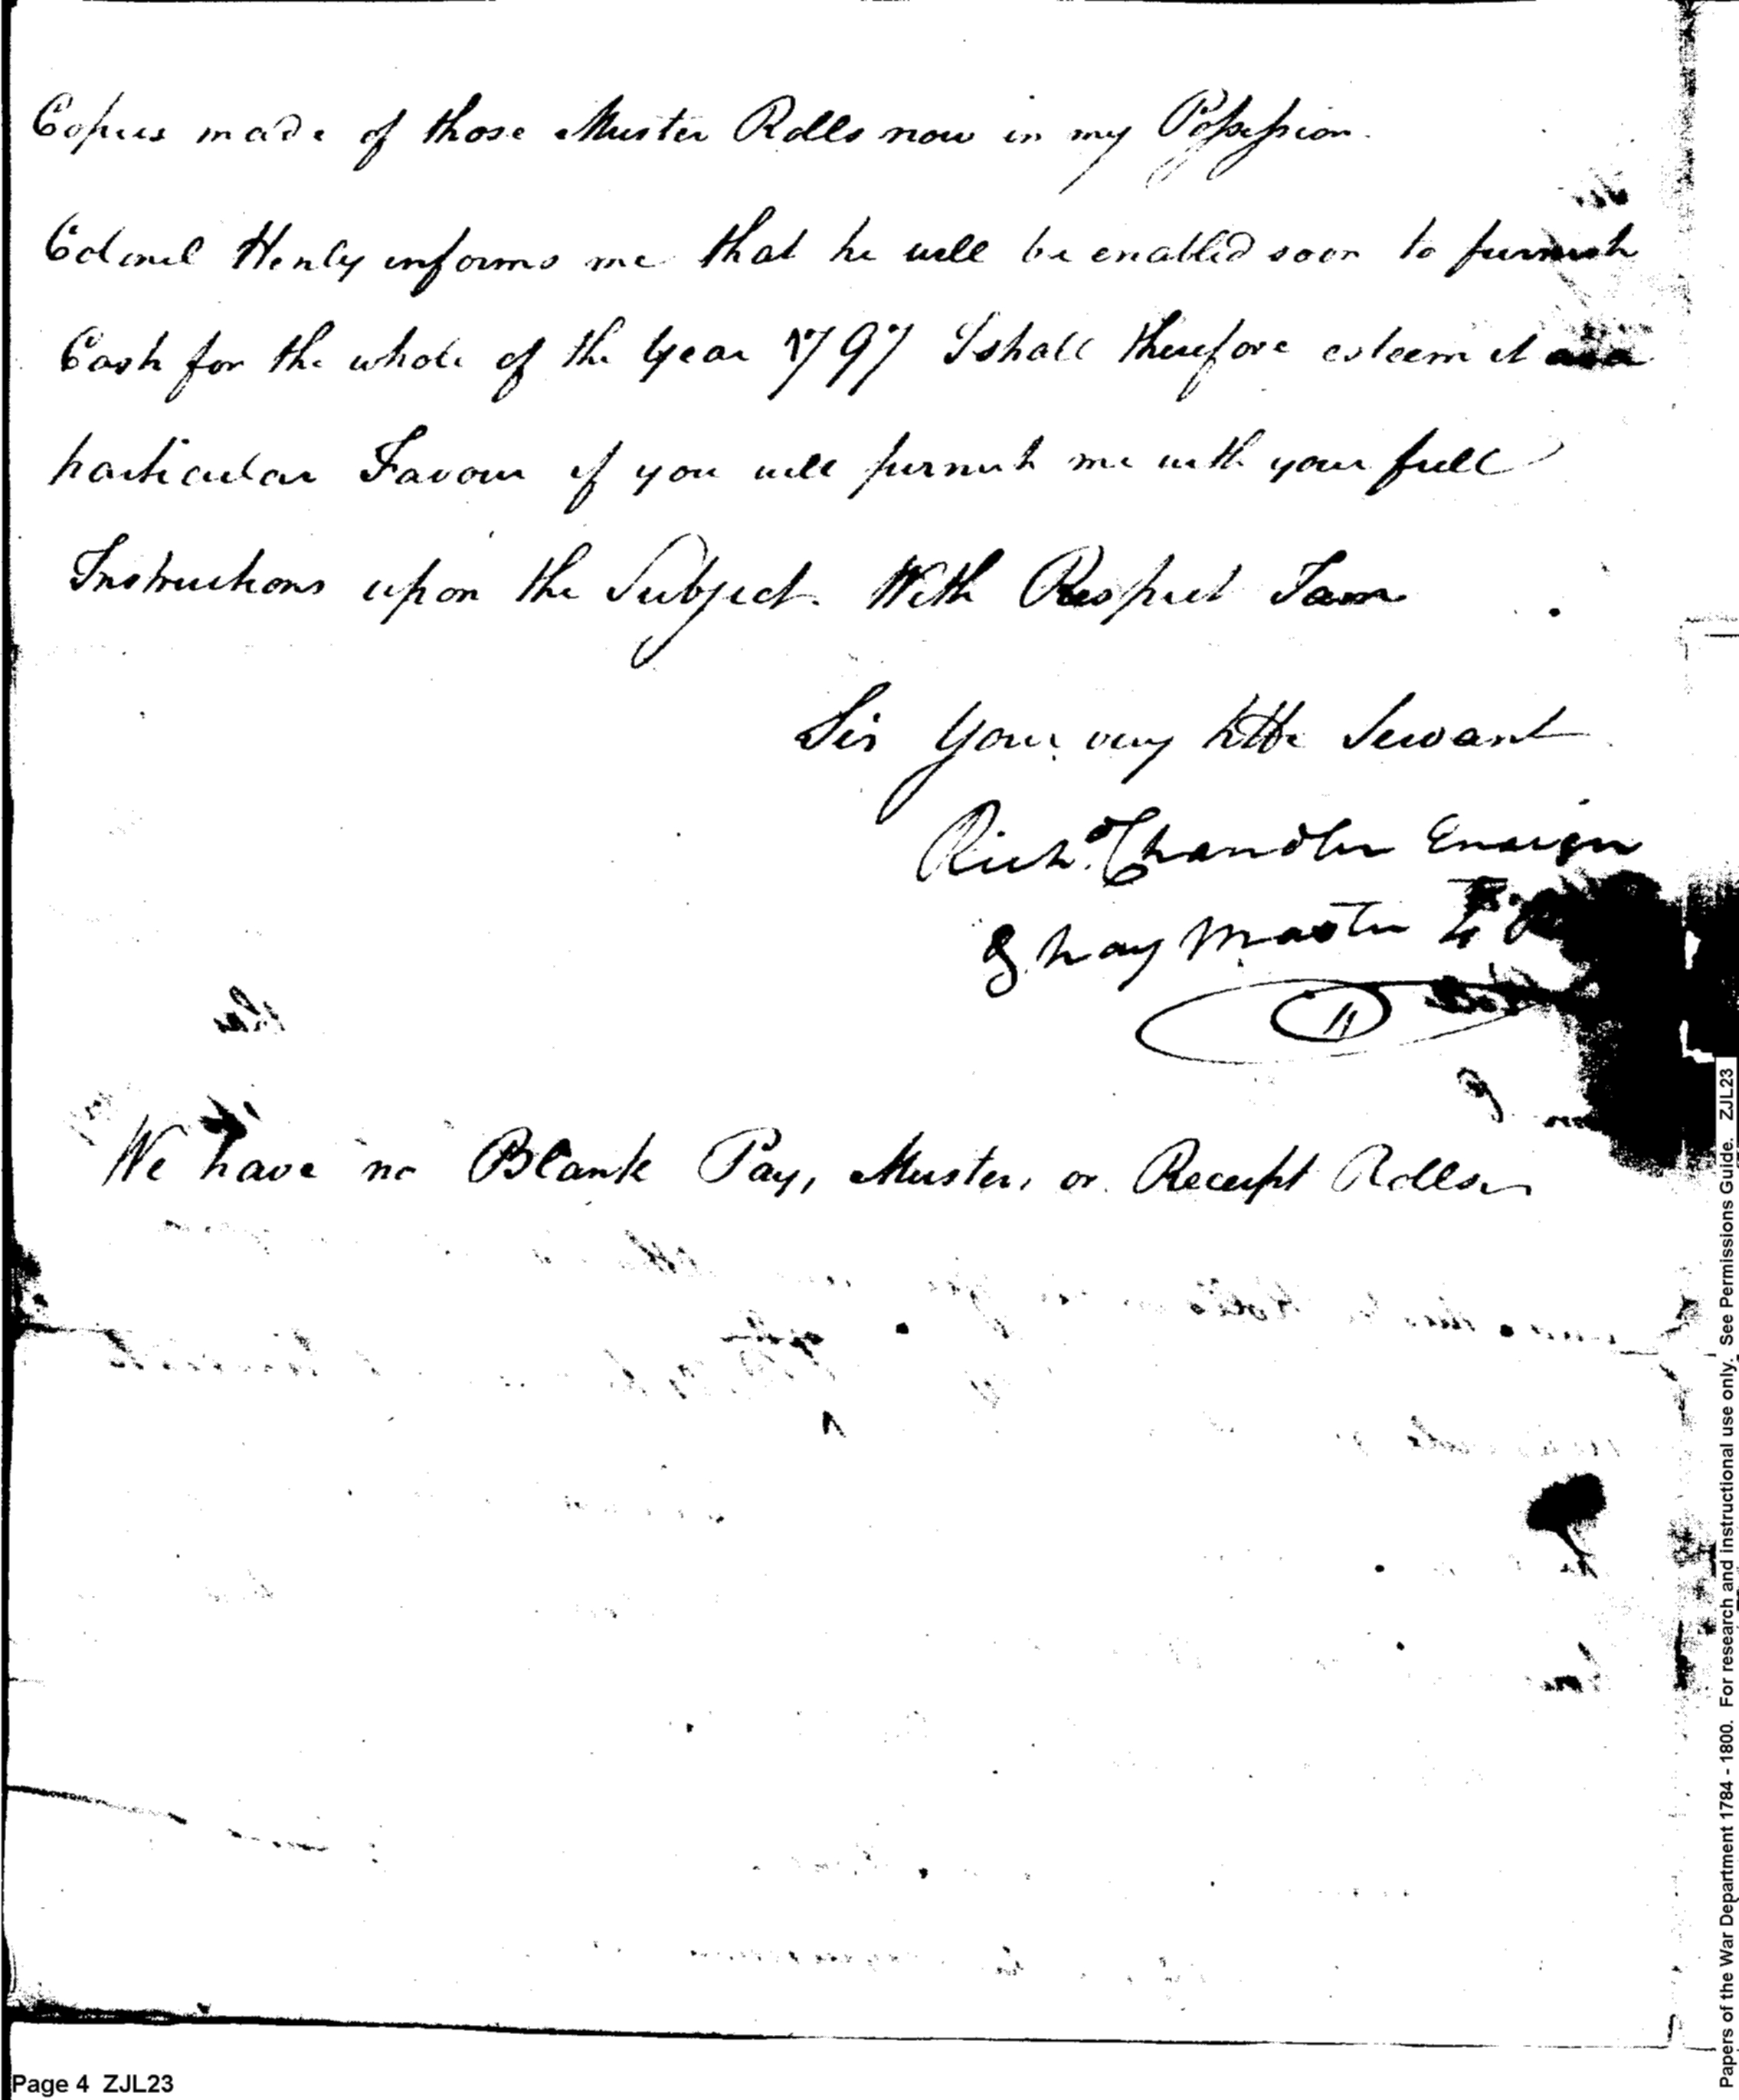 Copies made of those Muster Rolls now in my Possession.
Colonel Henly informs me that he will be enabled soon to furnish
Cash for the whole of the Year 1797 I shall therefore esteem it as a
particular Favour if you will furnish me with your full
Instructions upon the Subject. With Respect I am
Sir Your very Hble Servant
Richd. Chandler Ensign
& pay Master 4
We have no Blank Pay, Muster, or Receipt Rolls
Page 4 ZJL23
Papers of the War Department 1784 - 1800. For research and instructional use only. See Permissions Guide. ZJL23